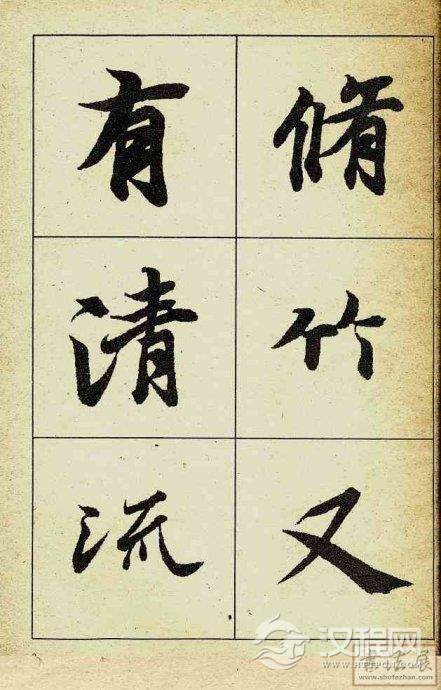 脩竹又
有清流
汉程网
www.shufezhan.com